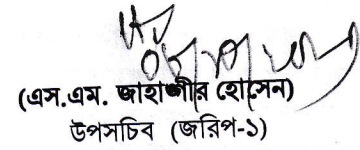 (এস.এম. জাহাঙ্গীর হোসেন)
উপসচিব (জরিপ-১)